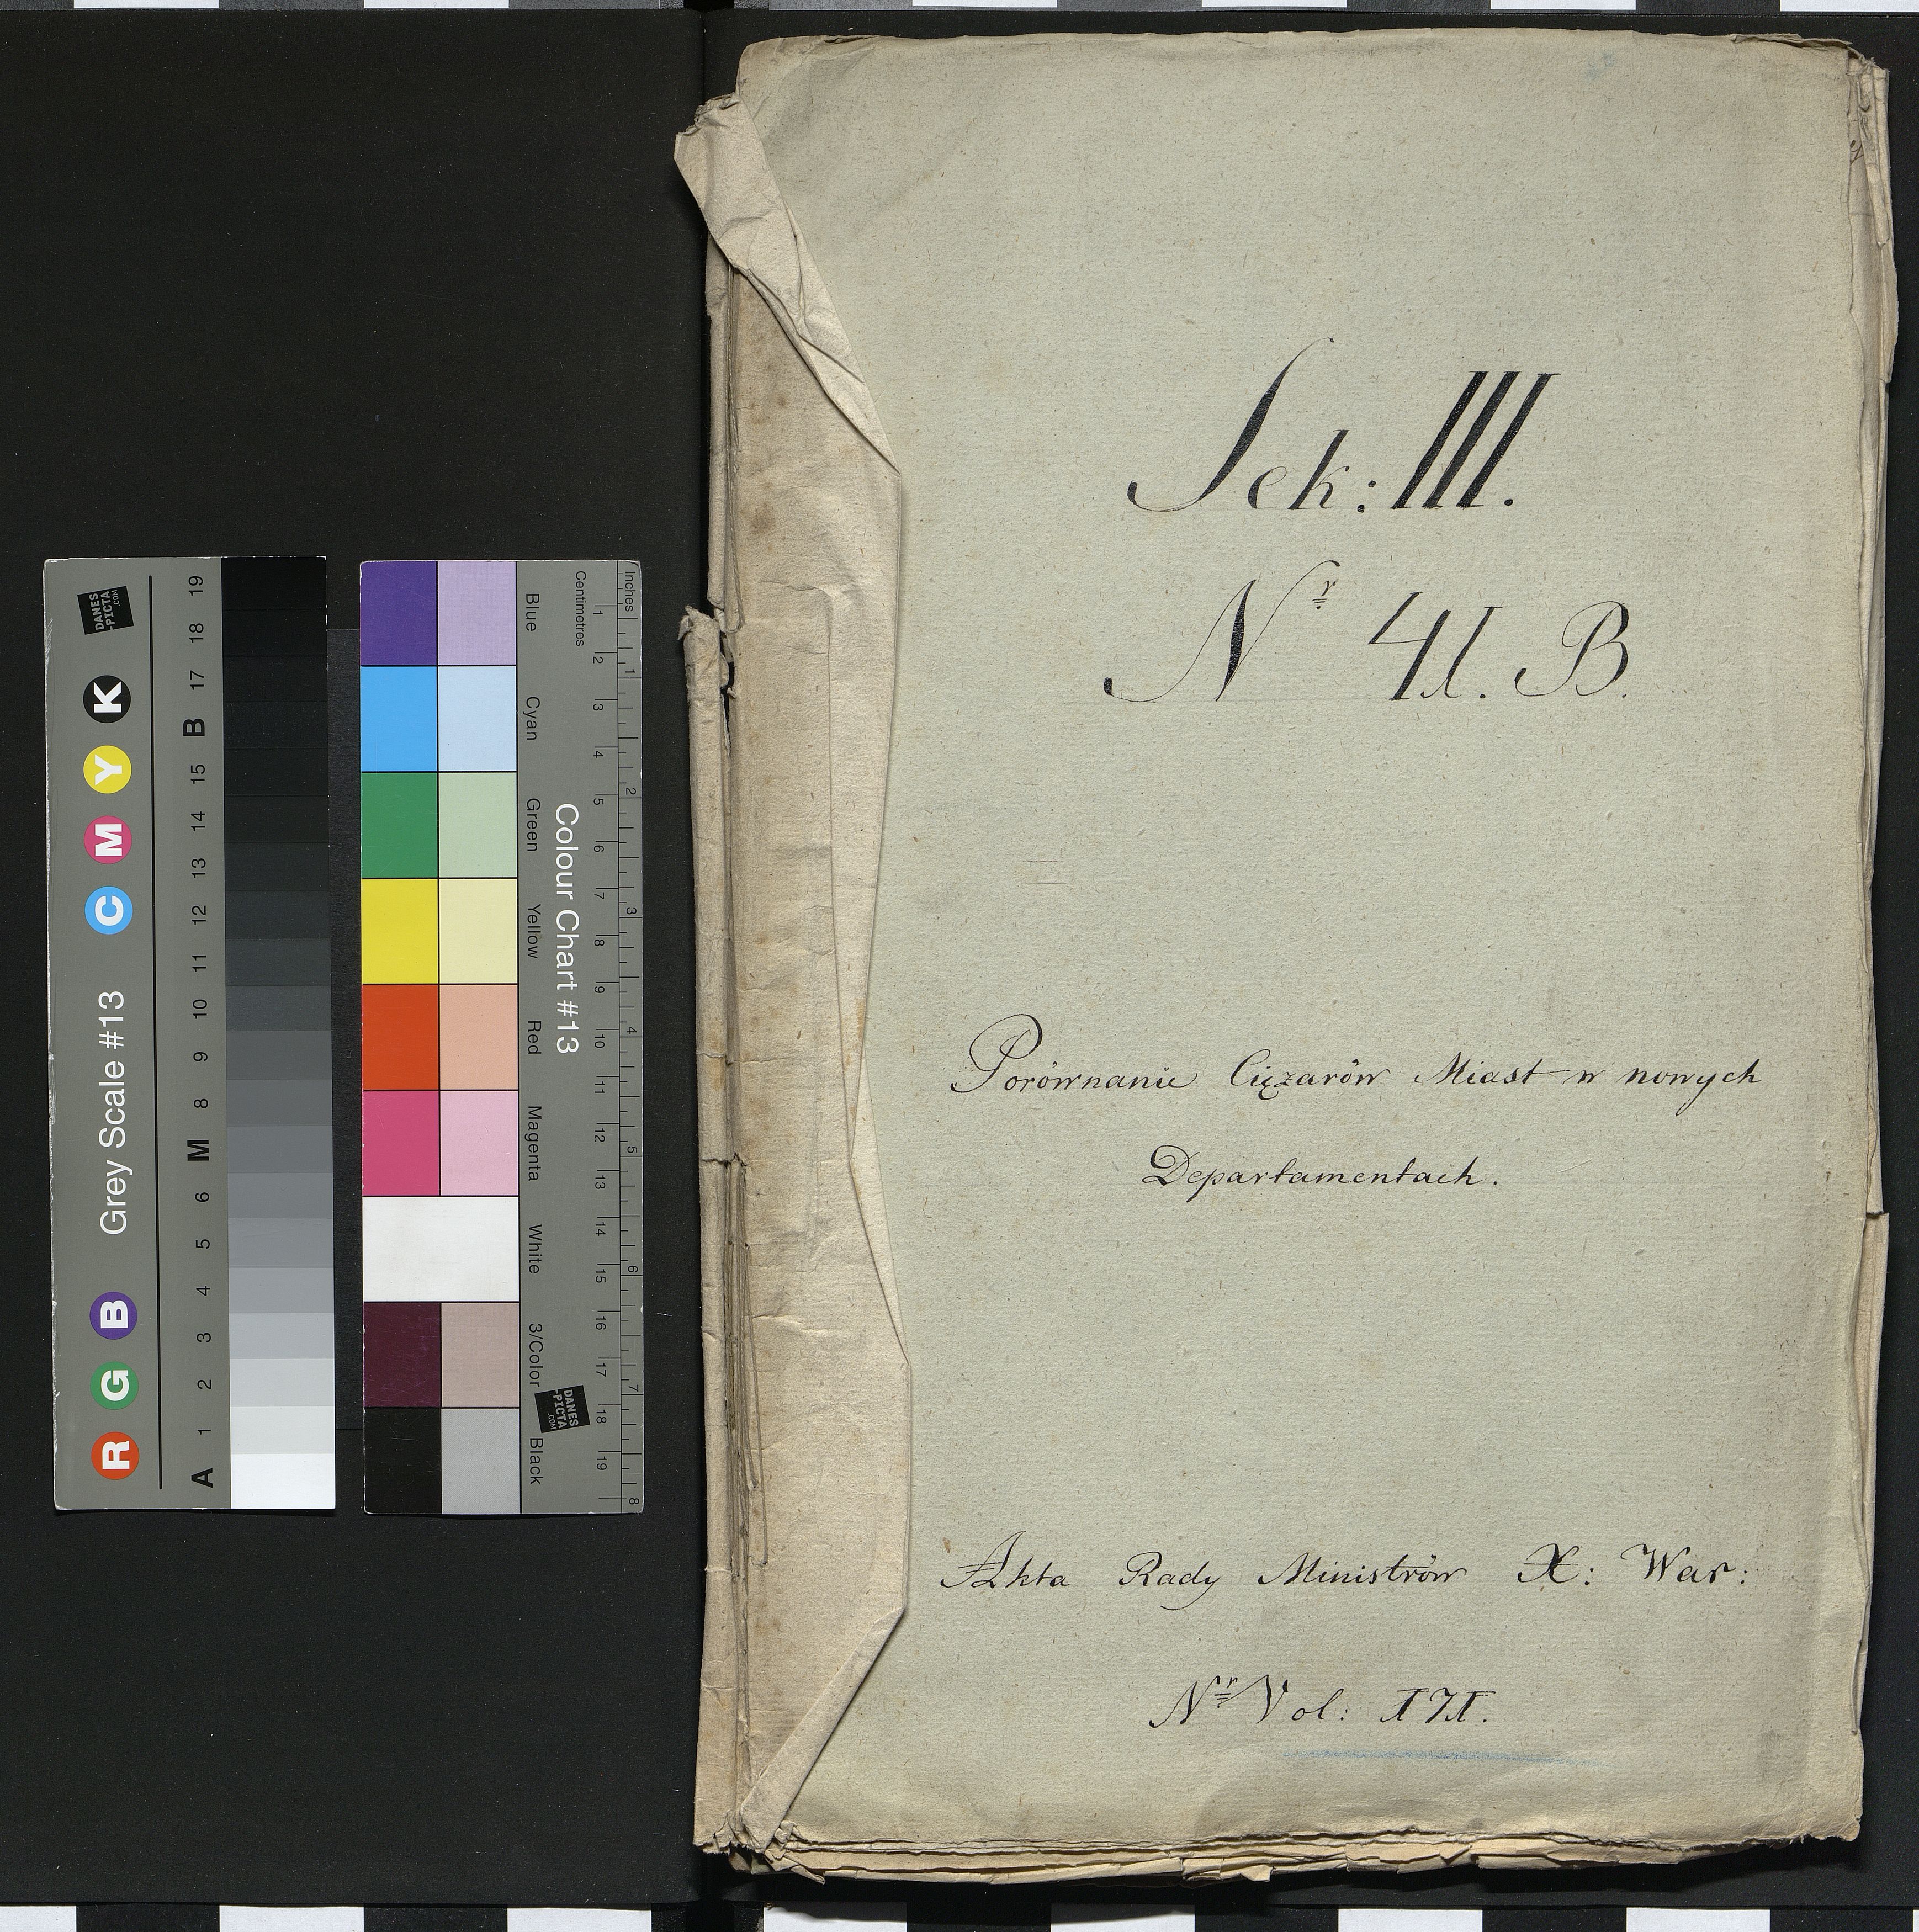 Sek: III.
Nr 41. B.
Porównanie Ciężarów Miast w nowych
Departamentach.
Akta Rady Ministrów X: War:
Nr Vol: 171.
Grey Scale #13
R G B C M Y K
A 1 2 3 4 5 6 M 8 9 10 11 12 13 14 15 B 17 18 19
DANES
-PICTA
.COM
Colour Chart #13
Blue Cyan Green Yellow Red Magenta White 3/Color Black
Centimetres 1 2 3 4 5 6 7 8 9 10 11 12 13 14 15 16 17 18 19
Inches 1 2 3 4 5 6 7 8
DANES
-PICTA
.COM